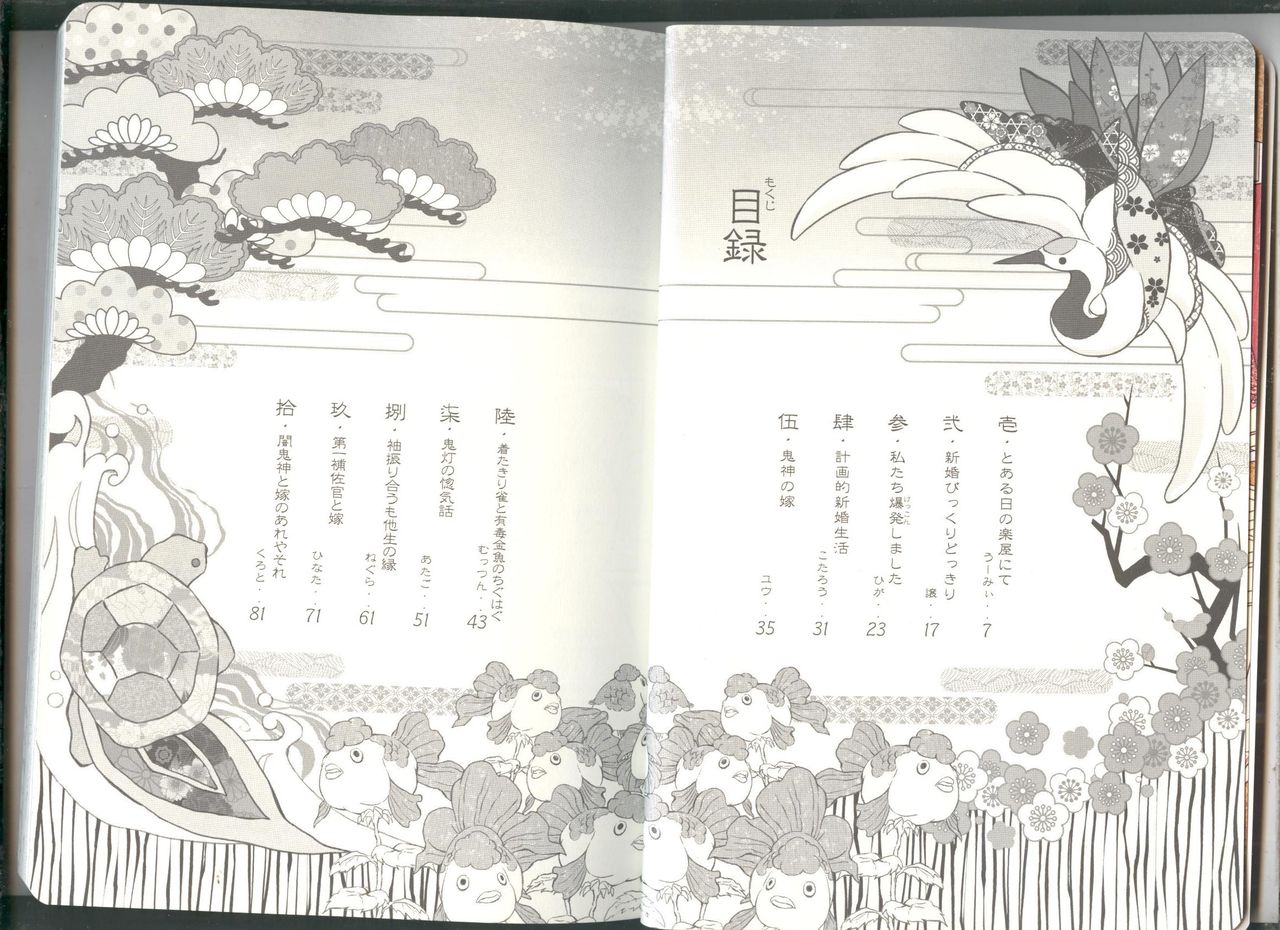 もくじ
目録
壱・とある日の楽屋にて
うーみぃ・・7
弐・新婚びっくりどっきり
譲・・17
参・私たち爆発しました
けっこん
ひが・・23
肆・計画的新婚生活
こたろう・・31
伍・鬼神の嫁
ユウ・・35
陸・着たきり雀と有毒金魚のちぐはぐ
むっつん・・43
柒・鬼灯の惚気話
あたご・・51
捌・袖振り合うも他生の縁
ねぐら・・61
玖・第一補佐官と嫁
ひなた・・71
拾・闇鬼神と嫁のあれやそれ
くろと・・81